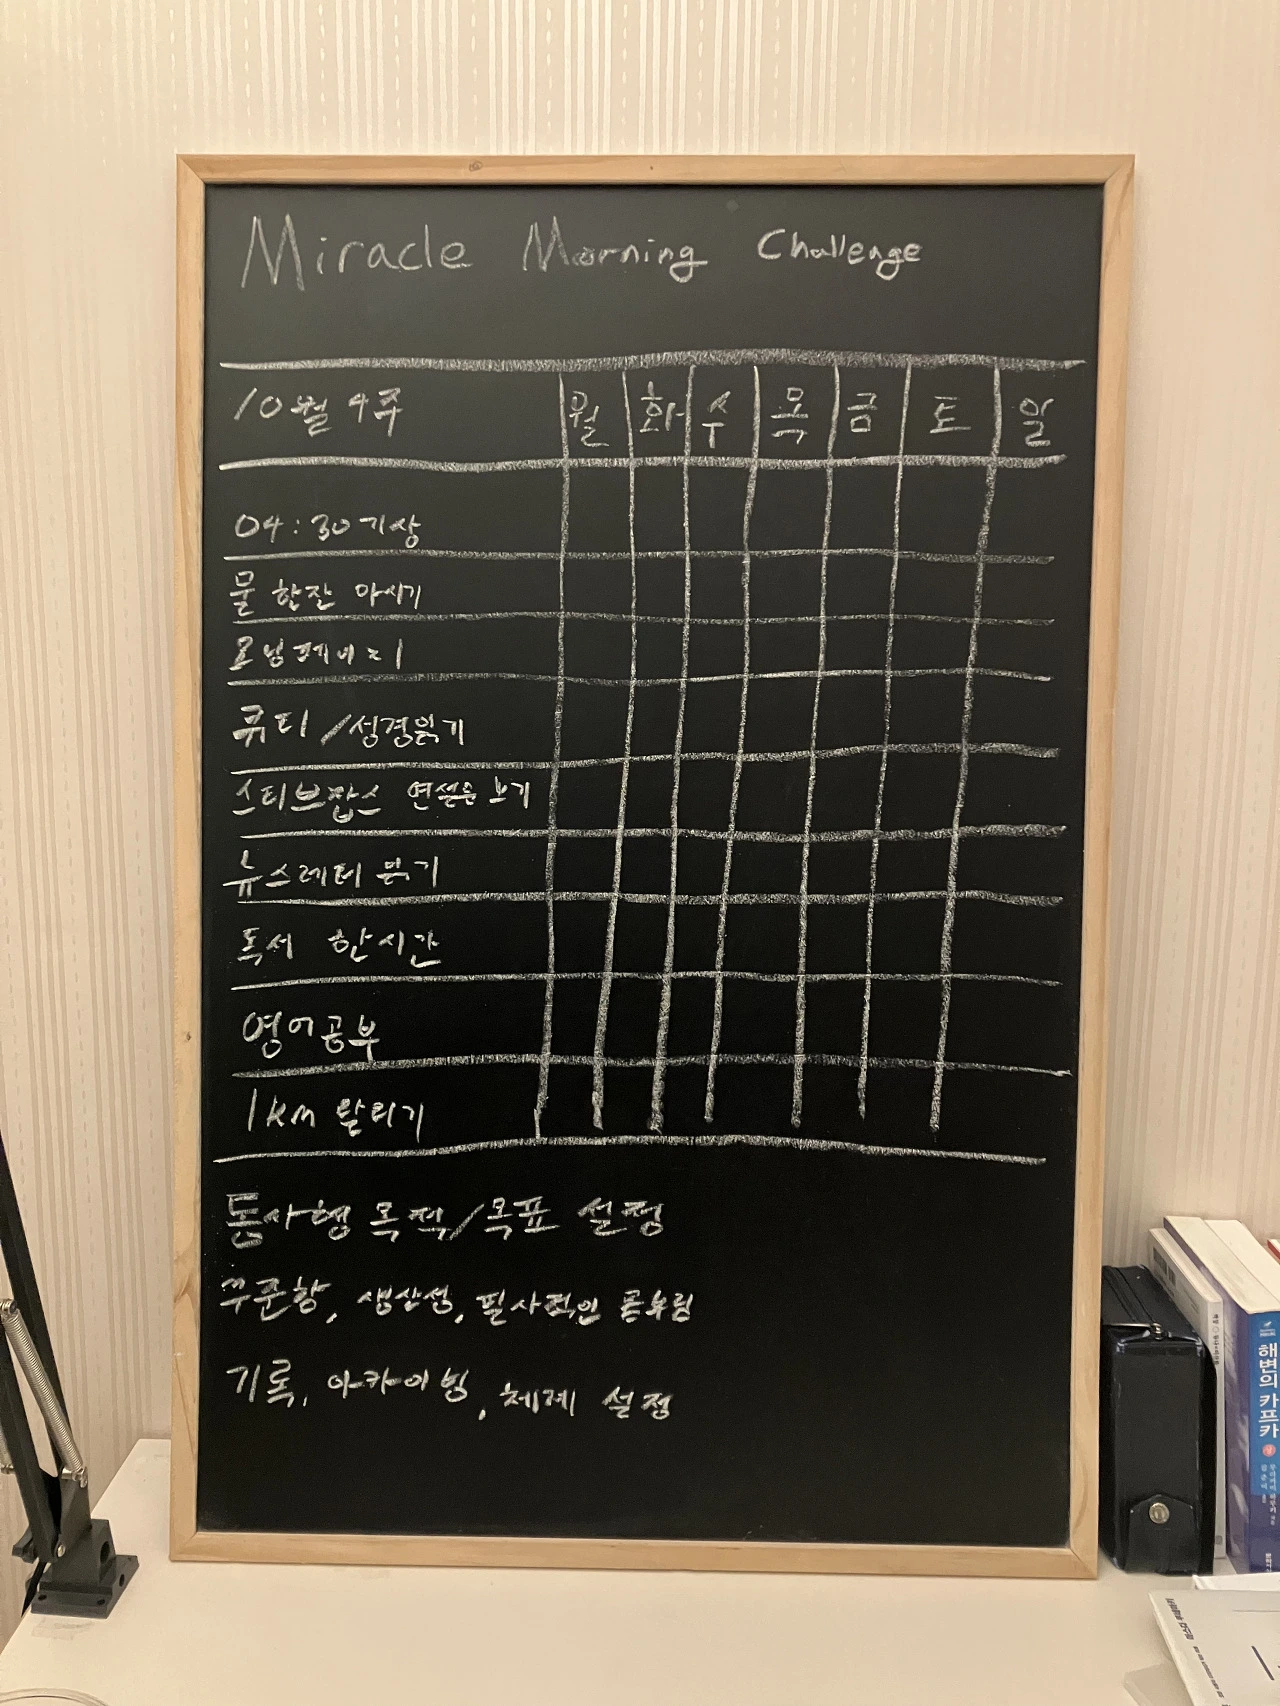 Miracle Morning Challenge
10월 4주 월 화 수 목 금 토 일
04:30 기상
물 한잔 마시기
모닝페이지
큐티/성경읽기
스티브잡스 연설문 보기
뉴스레터 읽기
독서 한시간
영어공부
1km 달리기
통사행 목적/목표 설정
꾸준함, 생산성, 필사적인 몸부림
기록, 아카이빙, 체계 설정
해변의 카프카